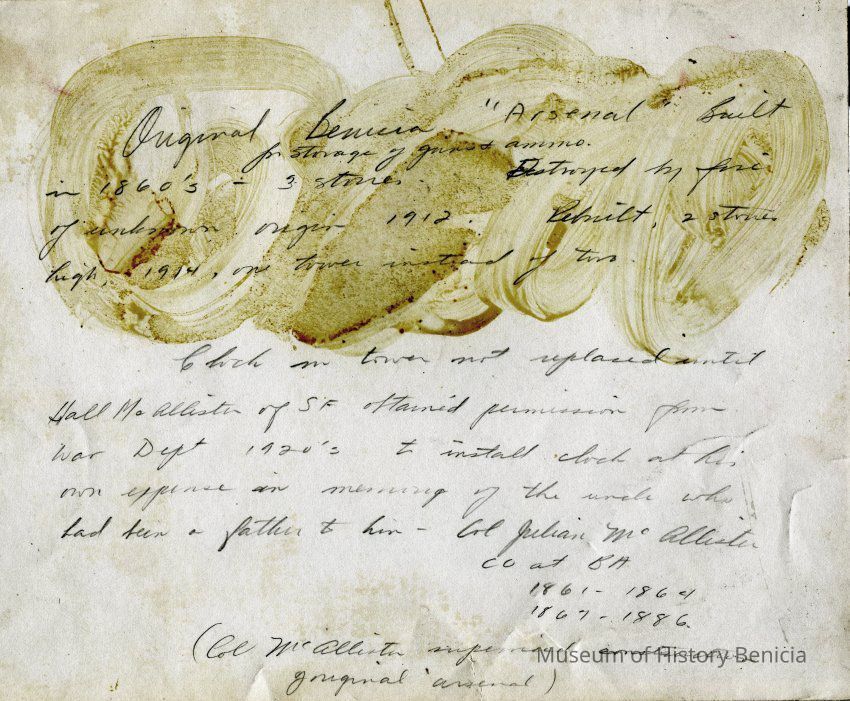 Original Benicia "Arsenal" Built
for storage of guns & ammo.
in 1860's - 3 stories. Destroyed by fire
of unknown origin 1912. Rebuilt, 2 stories
high, 1914, one tower instead of two.
Clock in tower not replaced until
Hall McAllister of SF obtained permission from
War Dept 1920's to install clock at his
own expense in memory of the uncle who
had been a father to him - Col Julian McAllister
CO at BA
1861 - 1864
1867 - 1886
(Col McAllister supervised
original arsenal)
Museum of History Benicia